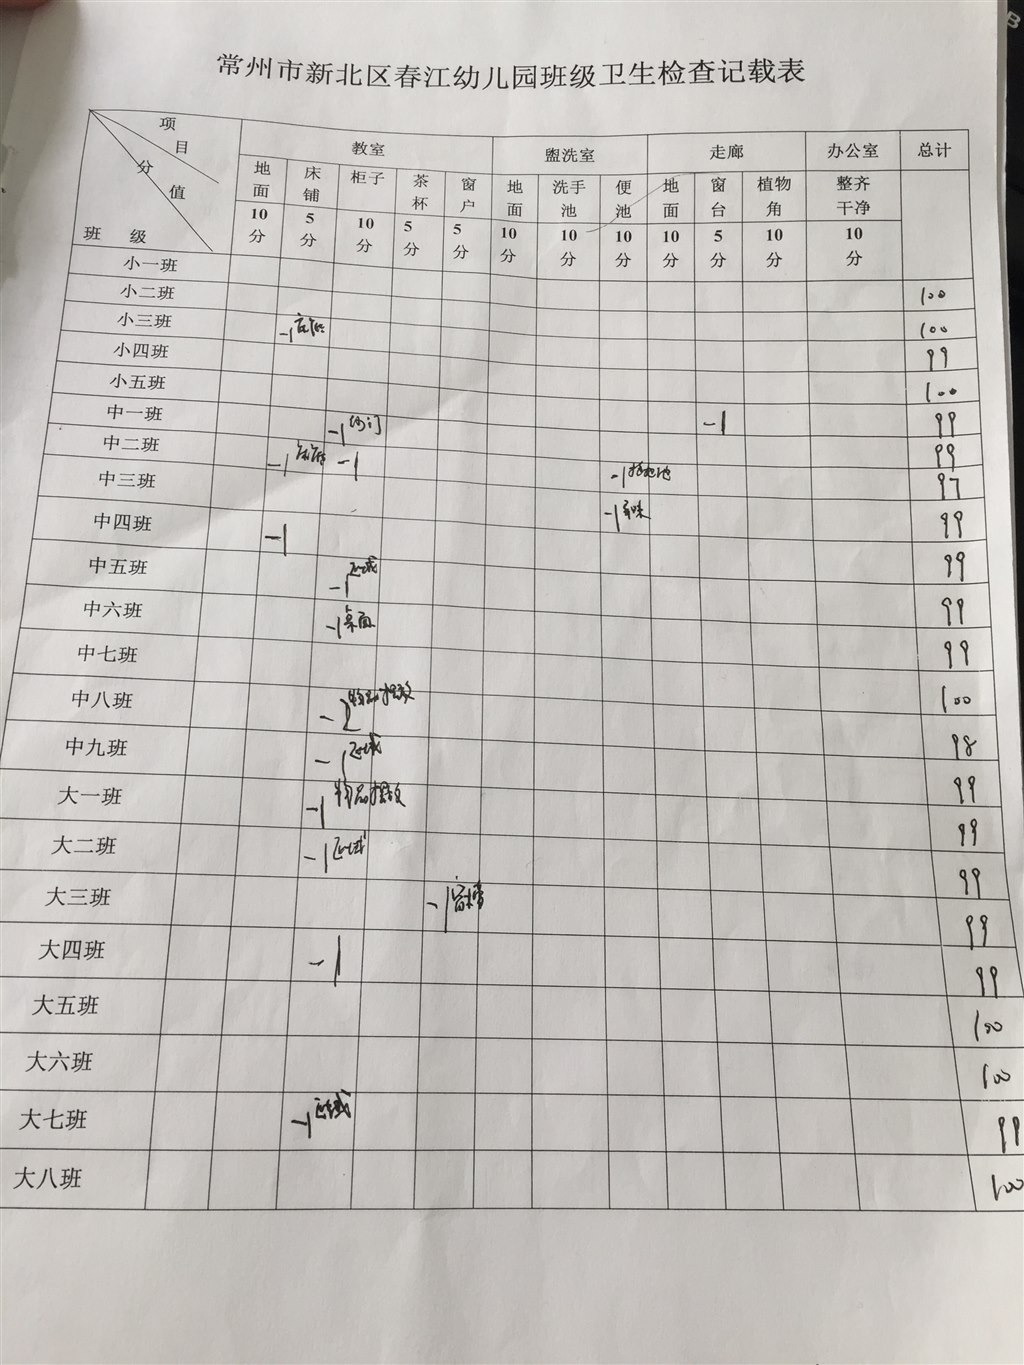 常州市新北区春江幼儿园班级卫生检查记载表
项目 分值 班级 教室 盥洗室 走廊 办公室 总计
地面 床铺 柜子 茶杯 窗户 地面 洗手池 便池 地面 窗台 植物角 整齐干净
10分 5分 10分 5分 5分 10分 10分 10分 10分 5分 10分 10分
小一班 100
小二班 100
小三班 -1 99
小四班 100
小五班 -1 99
中一班 -1 99
中二班 -1 -1 -1拖把池 97
中三班 -1异味 99
中四班 -1 99
中五班 -1区域 99
中六班 -1桌面 99
中七班 100
中八班 -2物品摆放 98
中九班 -1区域 99
大一班 -1物品摆放 99
大二班 -1区域 99
大三班 -1窗槽 99
大四班 -1 99
大五班 100
大六班 100
大七班 -1区域 99
大八班 100